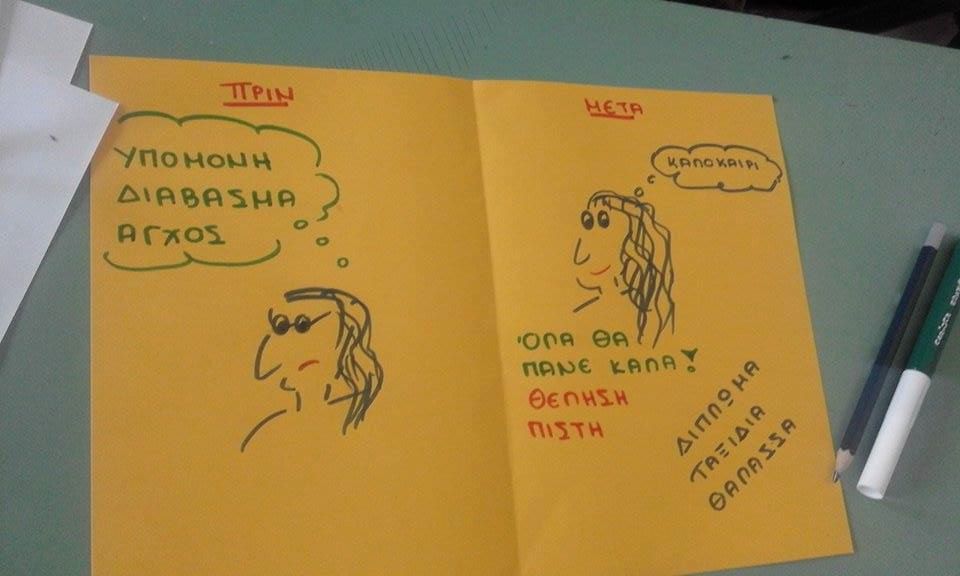 ΠΡΙΝ
ΥΠΟΜΟΝΗ
ΔΙΑΒΑΣΜΑ
ΑΓΧΟΣ
ΜΕΤΑ
ΚΑΛΟΚΑΙΡΙ
ΌΛΑ ΘΑ
ΠΑΝΕ ΚΑΛΑ!
ΘΕΛΗΣΗ
ΠΙΣΤΗ
ΔΙΠΛΩΜΑ
ΤΑΞΙΔΙΑ
ΘΑΛΑΣΣΑ